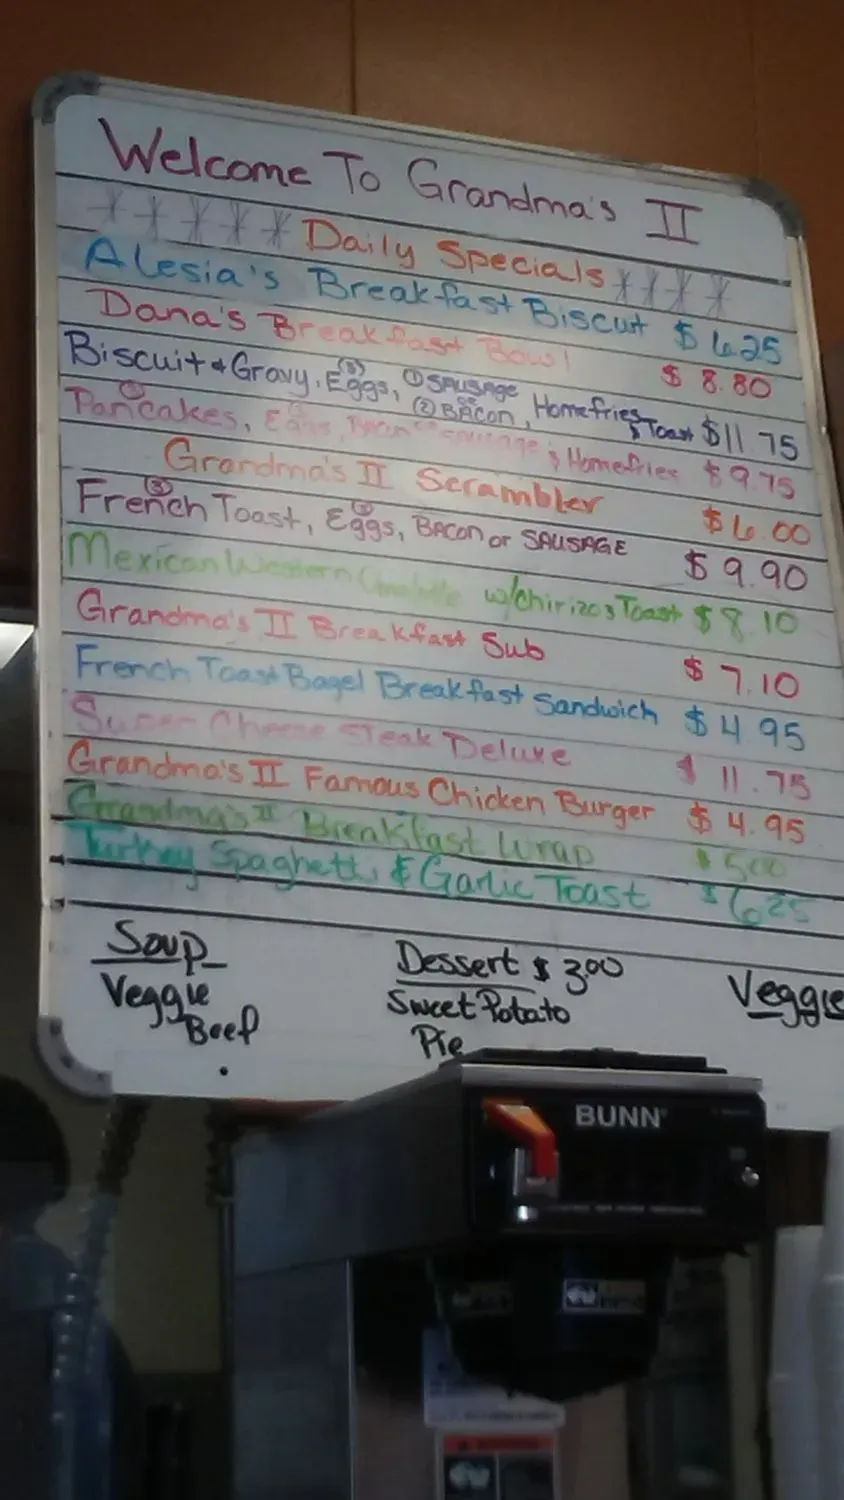 Welcome To Grandma's II
Daily Specials
Alesia's Breakfast Biscut $6.25
Dana's Breakfast Bowl $8.80
Biscuit & Gravy, (3) Eggs, ① SAUSAGE or ② BACon, Homefries & Toast $11.75
Pancakes, Eggs, Bacon or sausage & Homefries $9.75
Grandma's II Scrambler $6.00
③ French Toast, Eggs, BACon or SAUSAGE $9.90
Mexican Western w/chirizo & Toast $8.10
Grandma's II Breakfast Sub $7.10
French Toast Bagel Breakfast Sandwich $4.95
Super Cheese Steak Deluxe $11.75
Grandma's II Famous Chicken Burger $4.95
Grandma's II Breakfast Wrap $5.00
Turkey Spaghetti & Garlic Toast $6.25
Soup
Veggie
Beef
Dessert $3.00
Sweet Potato
Pie
Veggie
BUNN